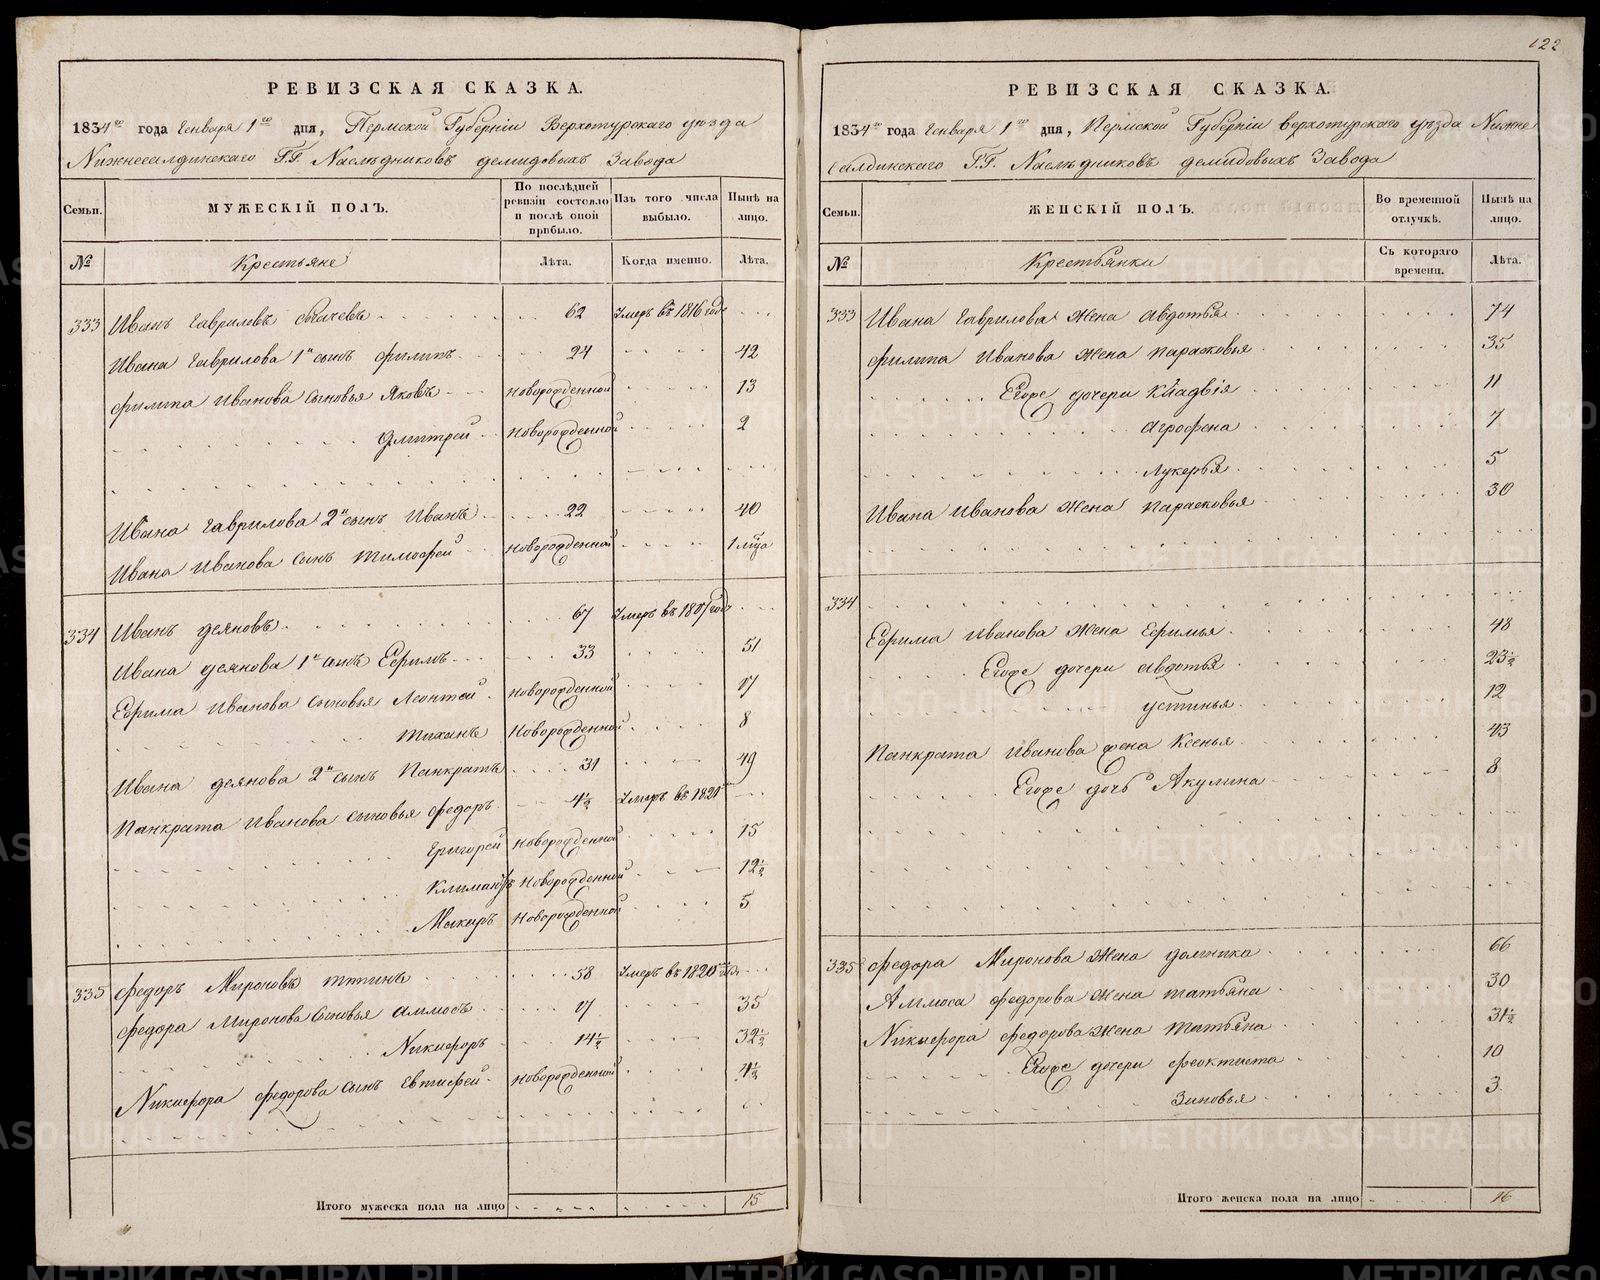 РЕВИЗСКАЯ СКАЗКА.
1834го года Генваря 1го дня, Пермской Губерніи Верхотурскаго уѣзда
Нижнесалдинскаго Г.Г. Наслѣдниковъ демидовыхъ Завода
Семьи.
МУЖЕСКІЙ ПОЛЪ.
По послѣдней ревизіи состояло и послѣ оной прибыло.
Изъ того числа выбыло.
Нынѣ на лицо.
№
Крестьяне
Лѣта.
Когда именно.
Лѣта.
333 Иванъ Гавриловъ 62 Умеръ въ 1816 годѣ
Ивана Гаврилова 1й сынъ Филипъ 24 42
Филипа Иванова сыновья Яковъ новорожденной 13
Дмитрей новорожденной 2
Ивана Гаврилова 2й сынъ Иванъ 22 40
Ивана Иванова сынъ Тимофей новорожденной 1 мѣца
334 Иванъ деяновъ 67 Умеръ въ годѣ
Ивана деянова 1й сынъ Ефримъ 33 51
Ефрима Иванова сыновья Леонтей новорожденной 17
Тиханъ Новорожденной 8
Ивана деянова 2й сынъ Панкратъ 31 49
Панкрата Иванова сыновья Федоръ 4½ Умеръ въ
Григорей Новорожденной 15
Новорожденной 12½
Макаръ Новорожденной 5
335 Федоръ Мироновъ 58 Умеръ въ
Федора Миронова Сыновья Аммосъ 17 35
Никифоръ 14½ 32½
Никифора Федорова сынъ Евтифей новорожденной
Итого мужеска пола на лицо 15
122
РЕВИЗСКАЯ СКАЗКА.
1834го года Генваря 1го дня, Пермской Губерніи верхотурскаго уѣзда Нижне
салдинскаго Г.Г. Наслѣдниковъ демидовыхъ Завода
Семьи.
ЖЕНСКІЙ ПОЛЪ.
Во временной отлучкѣ.
Нынѣ на лицо.
№
Крестьянки
Съ котораго времени.
Лѣта.
333 Ивана Гаврилова жена авдотья 74
Филипа Иванова жена парасковья 35
Егоже дочери 11
агрофена 7
лукерья 5
Ивана Иванова жена парасковья 30
334
Ефрима Иванова жена Ефимья 48
Егоже дочери авдотья 23½
устинья 12
Панкрата Иванова жена Ксенья 43
Егоже дочь Акулина 8
335 Федора Миронова жена домника 66
Аммоса федорова жена татьяна 30
Никифора федорова жена татьяна 31½
Егоже дочери феоктиста 10
Зиновья 3
Итого женска пола на лицо 16
METRIKI.GASO-URAL.RU